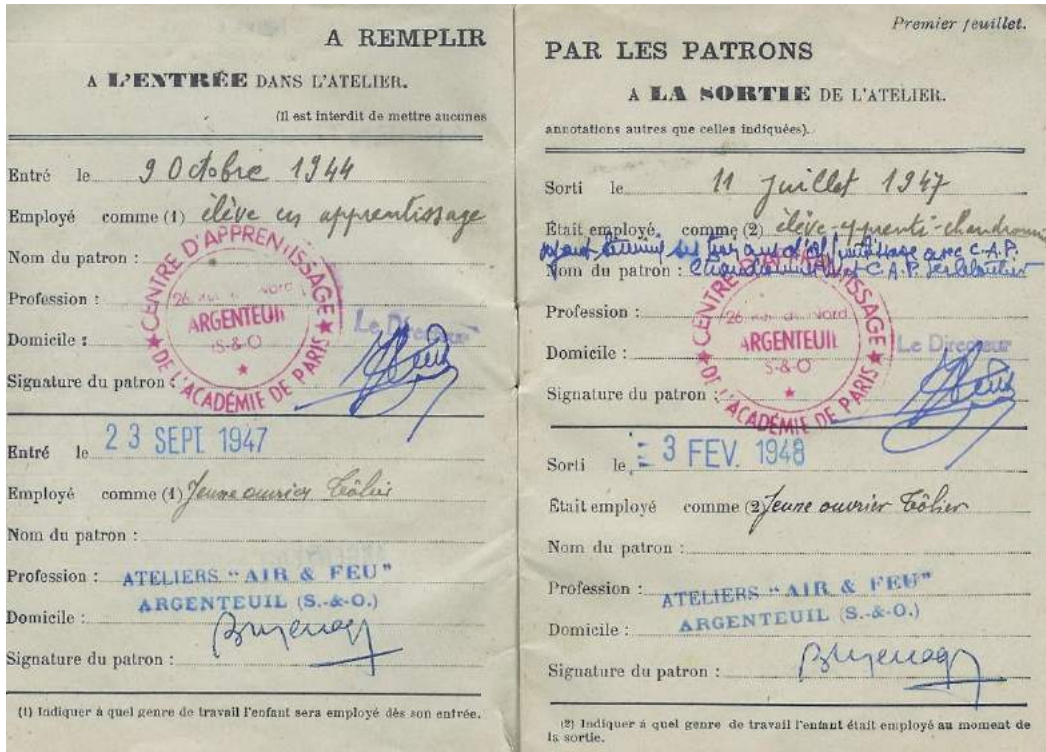 A REMPLIR
A L'ENTRÉE DANS L'ATELIER.
(Il est interdit de mettre aucunes
Entré le 9 Octobre 1944
Employé comme (1) élève en apprentissage
Nom du patron :
Profession :
Domicile :
Signature du patron :
CENTRE D'APPRENTISSAGE
DE L'ACADÉMIE DE PARIS
26 Rue du Nord
ARGENTEUIL
(S-&-O)
Le Directeur
Entré le 23 SEPT 1947
Employé comme (1) Jeune ouvrier tôlier
Nom du patron :
Profession : ATELIERS "AIR & FEU"
ARGENTEUIL (S.-&-O.)
Domicile :
Signature du patron :
(1) Indiquer à quel genre de travail l'enfant sera employé dès son entrée.
Premier feuillet.
PAR LES PATRONS
A LA SORTIE DE L'ATELIER.
annotations autres que celles indiquées).
Sorti le 11 Juillet 1947
Était employé comme (2) élève-apprenti-chaudronnier
ayant terminé ses trois ans d'apprentissage avec C.A.P.
Nom du patron : Chaudronnier et C.A.P.
Profession :
Domicile :
Signature du patron :
CENTRE D'APPRENTISSAGE
DE L'ACADÉMIE DE PARIS
26 Rue du Nord
ARGENTEUIL
S-&-O
Le Directeur
Sorti le 3 FEV. 1948
Était employé comme (2) Jeune ouvrier tôlier
Nom du patron :
Profession : ATELIERS "AIR & FEU"
ARGENTEUIL (S.-&-O.)
Domicile :
Signature du patron :
(2) Indiquer à quel genre de travail l'enfant était employé au moment de
la sortie.